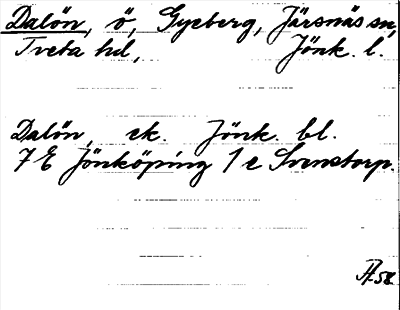 Dalön, ö, Gyeberg, Järsnäs sn,
Tveta hd, Jönk. l.
Dalön, ek. Jönk. bl.
7 E Jönköping 1 e Svenstorp.